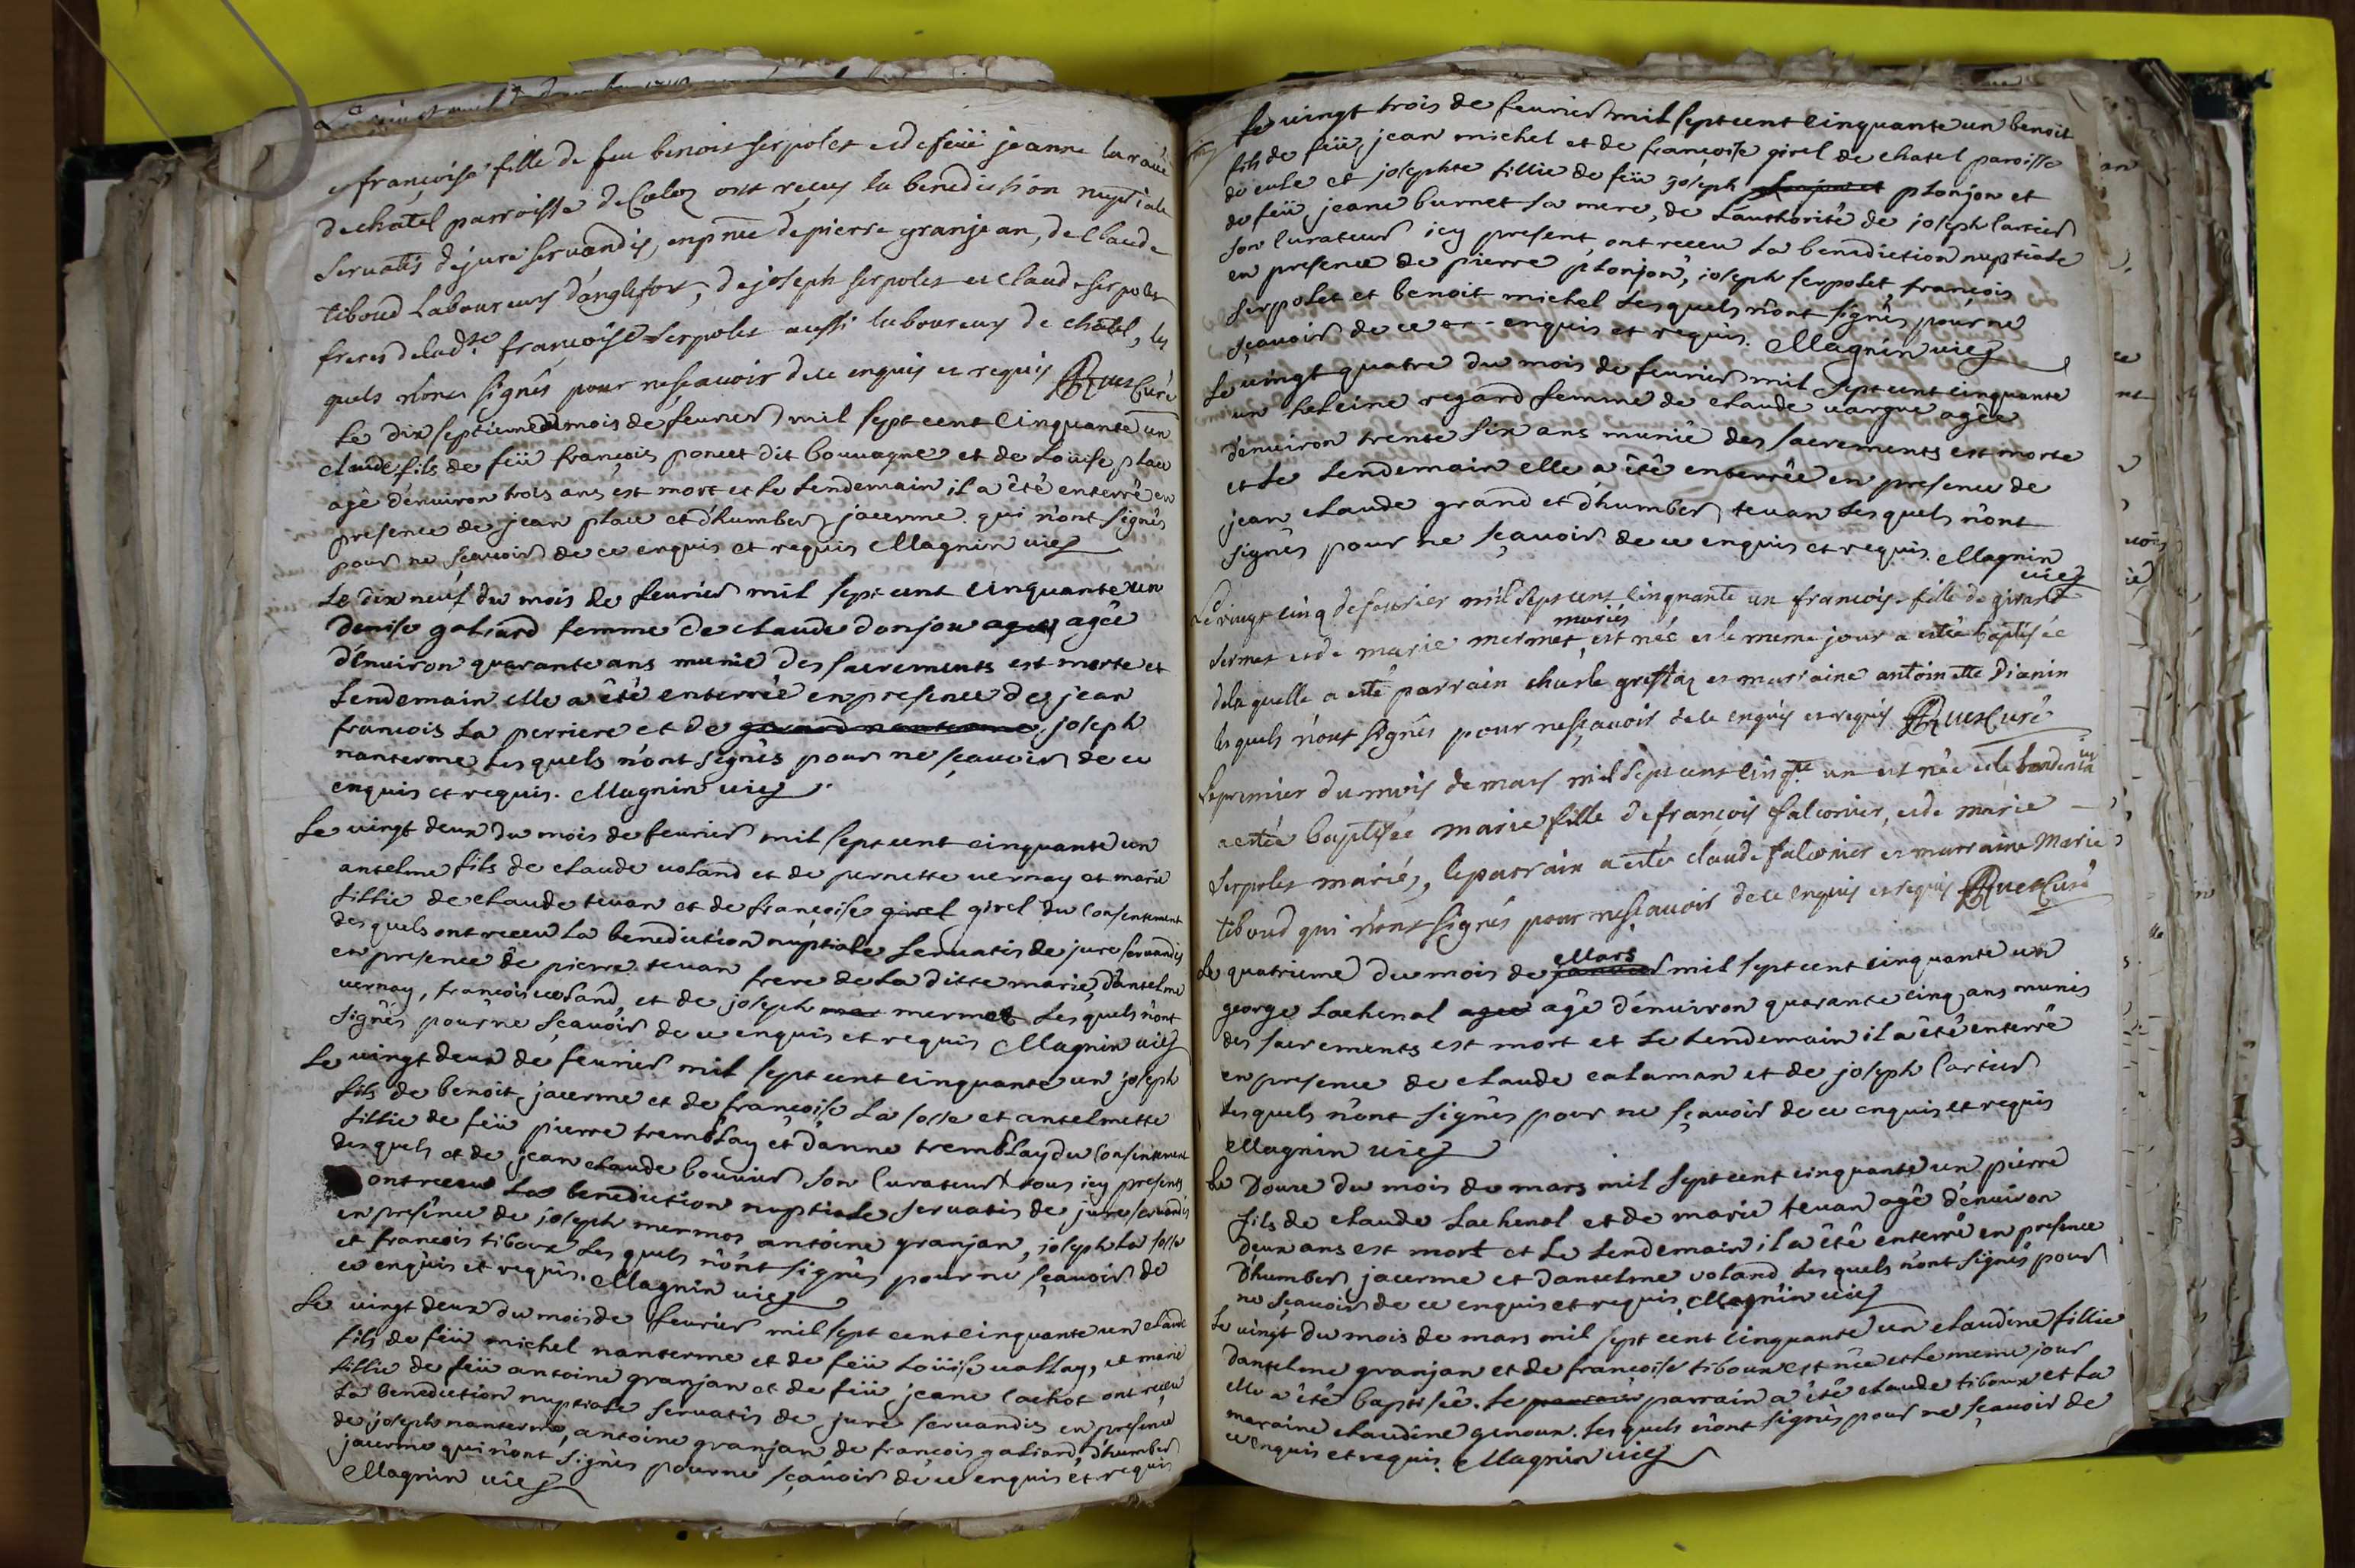 e françoise fille de feu benoit serpolet et de feüe jeanne la rave
de chatel parroisse de Culoz ont reçus la benediction nuptiale
servatis de jure servandis, en pñce de pierre granjean, de Claude
tiboud Laboureurs d'anglefort, de joseph serpolet et Claude serpolet
freres de lad.te françoise serpolet aussi laboureurs de chatel, les
quels n'ont signés pour ne sçavoir de ce enquis et requis Ruet Curé
Le dix septieme du mois de feurier mil sept cent cinquante un
claude fils de feü françois poncet dit bouuagne et de Loüise place
agé d'enuiron trois ans est mort et le Lendemain il a êté enterré en
presence de jean place et d'humber jacerme qui n'ont signés
pour ne sçauoir de ce enquis et requis Magnin uic
Le dix neuf du mois de feurier mil sept cent cinquante un
denise galiard femme de claude donjou agee agée
d'enuiron quarante ans munie des sacrements est morte et
Lendemain elle a êté enterrée en presence de jean
francois La perriere et de gerard nanterme joseph
nanterme Les quels n'ont signés pour ne sçauoir de ce
enquis et requis. Magnin uic
Le uingt deux du mois de feurier mil sept cent cinquante un
antelme fils de claude uoland et de pernette uernay et marie
fillie de claude teuan et de françoise girel girel du Consentement
des quels ont receu La benediction nuptiale seruatis de jure seruandis
en presence de pierre teuan frere de La ditte marie, d'antelme
uernay, francois uoland, et de joseph mer mermet Les quels n'ont
signés pour ne sçauoir de ce enquis et requis Magnin uic
Le uingt deux de feurier mil sept cent cinquante un joseph
fils de benoit jacerme et de françoise La fosse et antelmette
fillie de feü pierre tremblay et d'anne tremblay du Consentement
des quels et de jean claude bouuier son Curateur tous icy presents
ont receu La benediction nuptiale seruatis de jure seruandis
en presence de joseph mermos antoine granjan, joseph La fosse
et francois tiboux Les quels n'ont signés pour ne sçauoir de
ce enquis et requis. Magnin uic
Le uingt deux du mois de feurier mil sept cent cinquante un claude
fils de feü michel nanterme et de feü Loüise uallay, et marie
fillie de feü antoine granjan et de feü jeane Cachot ont receu
La benediction nuptiale seruatis de jure seruandis en presence
de joseph nanterme, antoine granjan de françois galiard, d'humber
jacerme qui n'ont signés pour ne sçauoir de ce enquis et requis
Magnin uic
Le uingt trois de feurier mil sept cent cinquante un benoit
fils de feü jean michel et de françoise girel de chatel paroisse
de cule et josephte fillie de feü joseph plonjon et
de feü jeane burnet sa mere, de L'authorité de joseph Cartier
son Curateur icy present ont receu La benediction nuptiale
en presence de pierre plonjon, joseph serpolet françois
serpolet et benoit michel Les quels n'ont signés pour ne
sçauoir de ce enquis et requis. Magnin uic
Le uingt quatre du mois de feurier mil sept cent cinquante
un heleine regard femme de claude uargue agée
d'enuiron trente six ans munie des sacrements est morte
et Le Lendemain elle a êté enterrée en presence de
jean claude grand et d'humber teuan Les quels n'ont
signés pour ne sçauoir de ce enquis et requis. Magnin
uic
Le vingt cinq de fevrier mil sept cent cinquante un françoise fille de girard
mariés
sermet et de marie mermet, est née et le meme jour a estée baptisée
de la quelle a esté parrain charle greffaz et marraine antoinette dianin
les quels n'ont signés pour ne sçavoir de ce enquis et requis Ruet Curé
Le premier du mois de mars mil sept cent cinq.te un est née et le lendemain
a estée baptisée marie fille de françois falconier, et de marie
serpolet mariés, le parrain a esté claude falconier et marraine Marie
tiboud qui n'ont signés pour ne sçavoir de ce enquis et requis Ruet Curé
Mars
Le quatrieme du mois de januier mil sept cent cinquante un
george Lachenal agee agé d'enuiron quarante cinq ans munis
des sacrements est mort et Le Lendemain il a êté enterré
en presence de claude calaman et de joseph Cartier
Les quels n'ont signés pour ne sçauoir de ce enquis et requis
Magnin uic
Le Douze du mois de mars mil sept cent cinquante un pierre
fils de claude Lachenal et de marie teuan agé d'enuiron
deux ans est mort et Le Lendemain il a êté enterré en presence
d'humber jacerme et d'antelme uoland Les quels n'ont signés pour
ne sçauoir de ce enquis et requis, Magnin uic
Le uingt du mois de mars mil sept cent cinquante un claudine fillie
d'antelme granjan et de francoise tiboux est née et Le meme jour
elle a êté baptisée. Le parrain a êté claude tiboux et La
maraine claudine genoux. Les quels n'ont signés pour ne sçauoir de
ce enquis et requis. Magnin uic